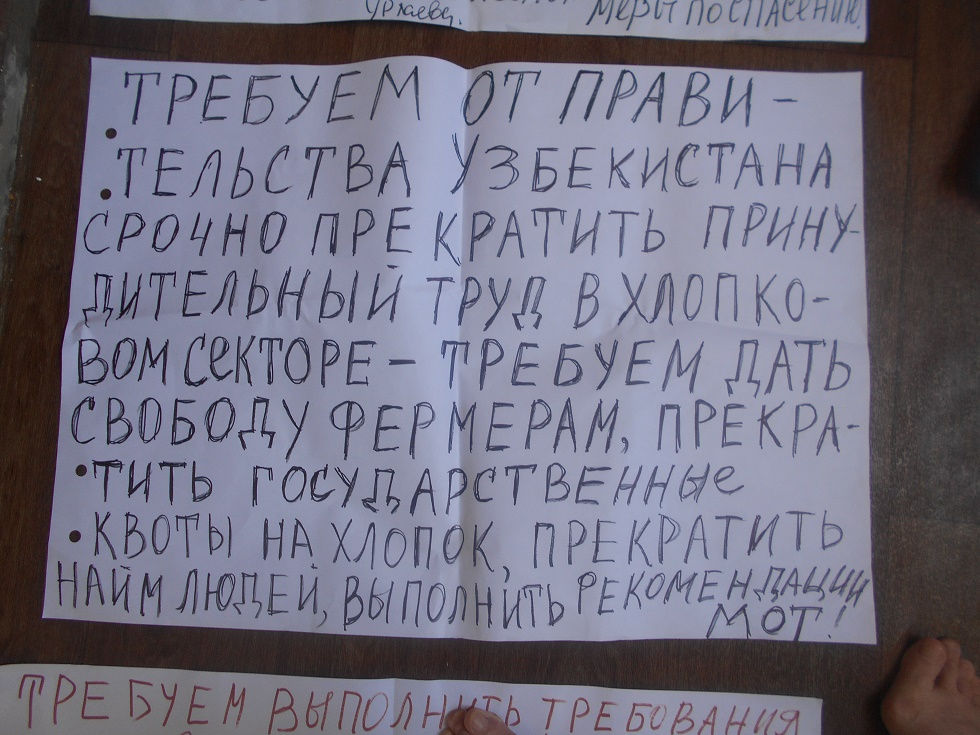 МЕРЫ ПО СПАСЕНИЮ
ТРЕБУЕМ ОТ ПРАВИ-
ТЕЛЬСТВА УЗБЕКИСТАНА
СРОЧНО ПРЕКРАТИТЬ ПРИНУ-
ДИТЕЛЬНЫЙ ТРУД В ХЛОПКО-
ВОМ СЕКТОРЕ – ТРЕБУЕМ ДАТЬ
СВОБОДУ ФЕРМЕРАМ, ПРЕКРА-
ТИТЬ ГОСУДАРСТВЕННЫЕ
КВОТЫ НА ХЛОПОК, ПРЕКРАТИТЬ
НАЙМ ЛЮДЕЙ, ВЫПОЛНИТЬ РЕКОМЕНДАЦИИ
МОТ!
ТРЕБУЕМ ВЫПОЛНИТЬ ТРЕБОВАНИЯ